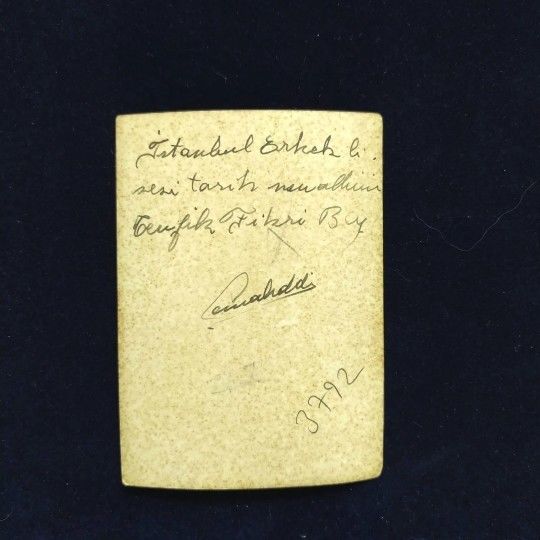 İstanbul Erkek li.
sesi tarih muallimi
Tevfik Fikri Bey
Cemaleddi
3792